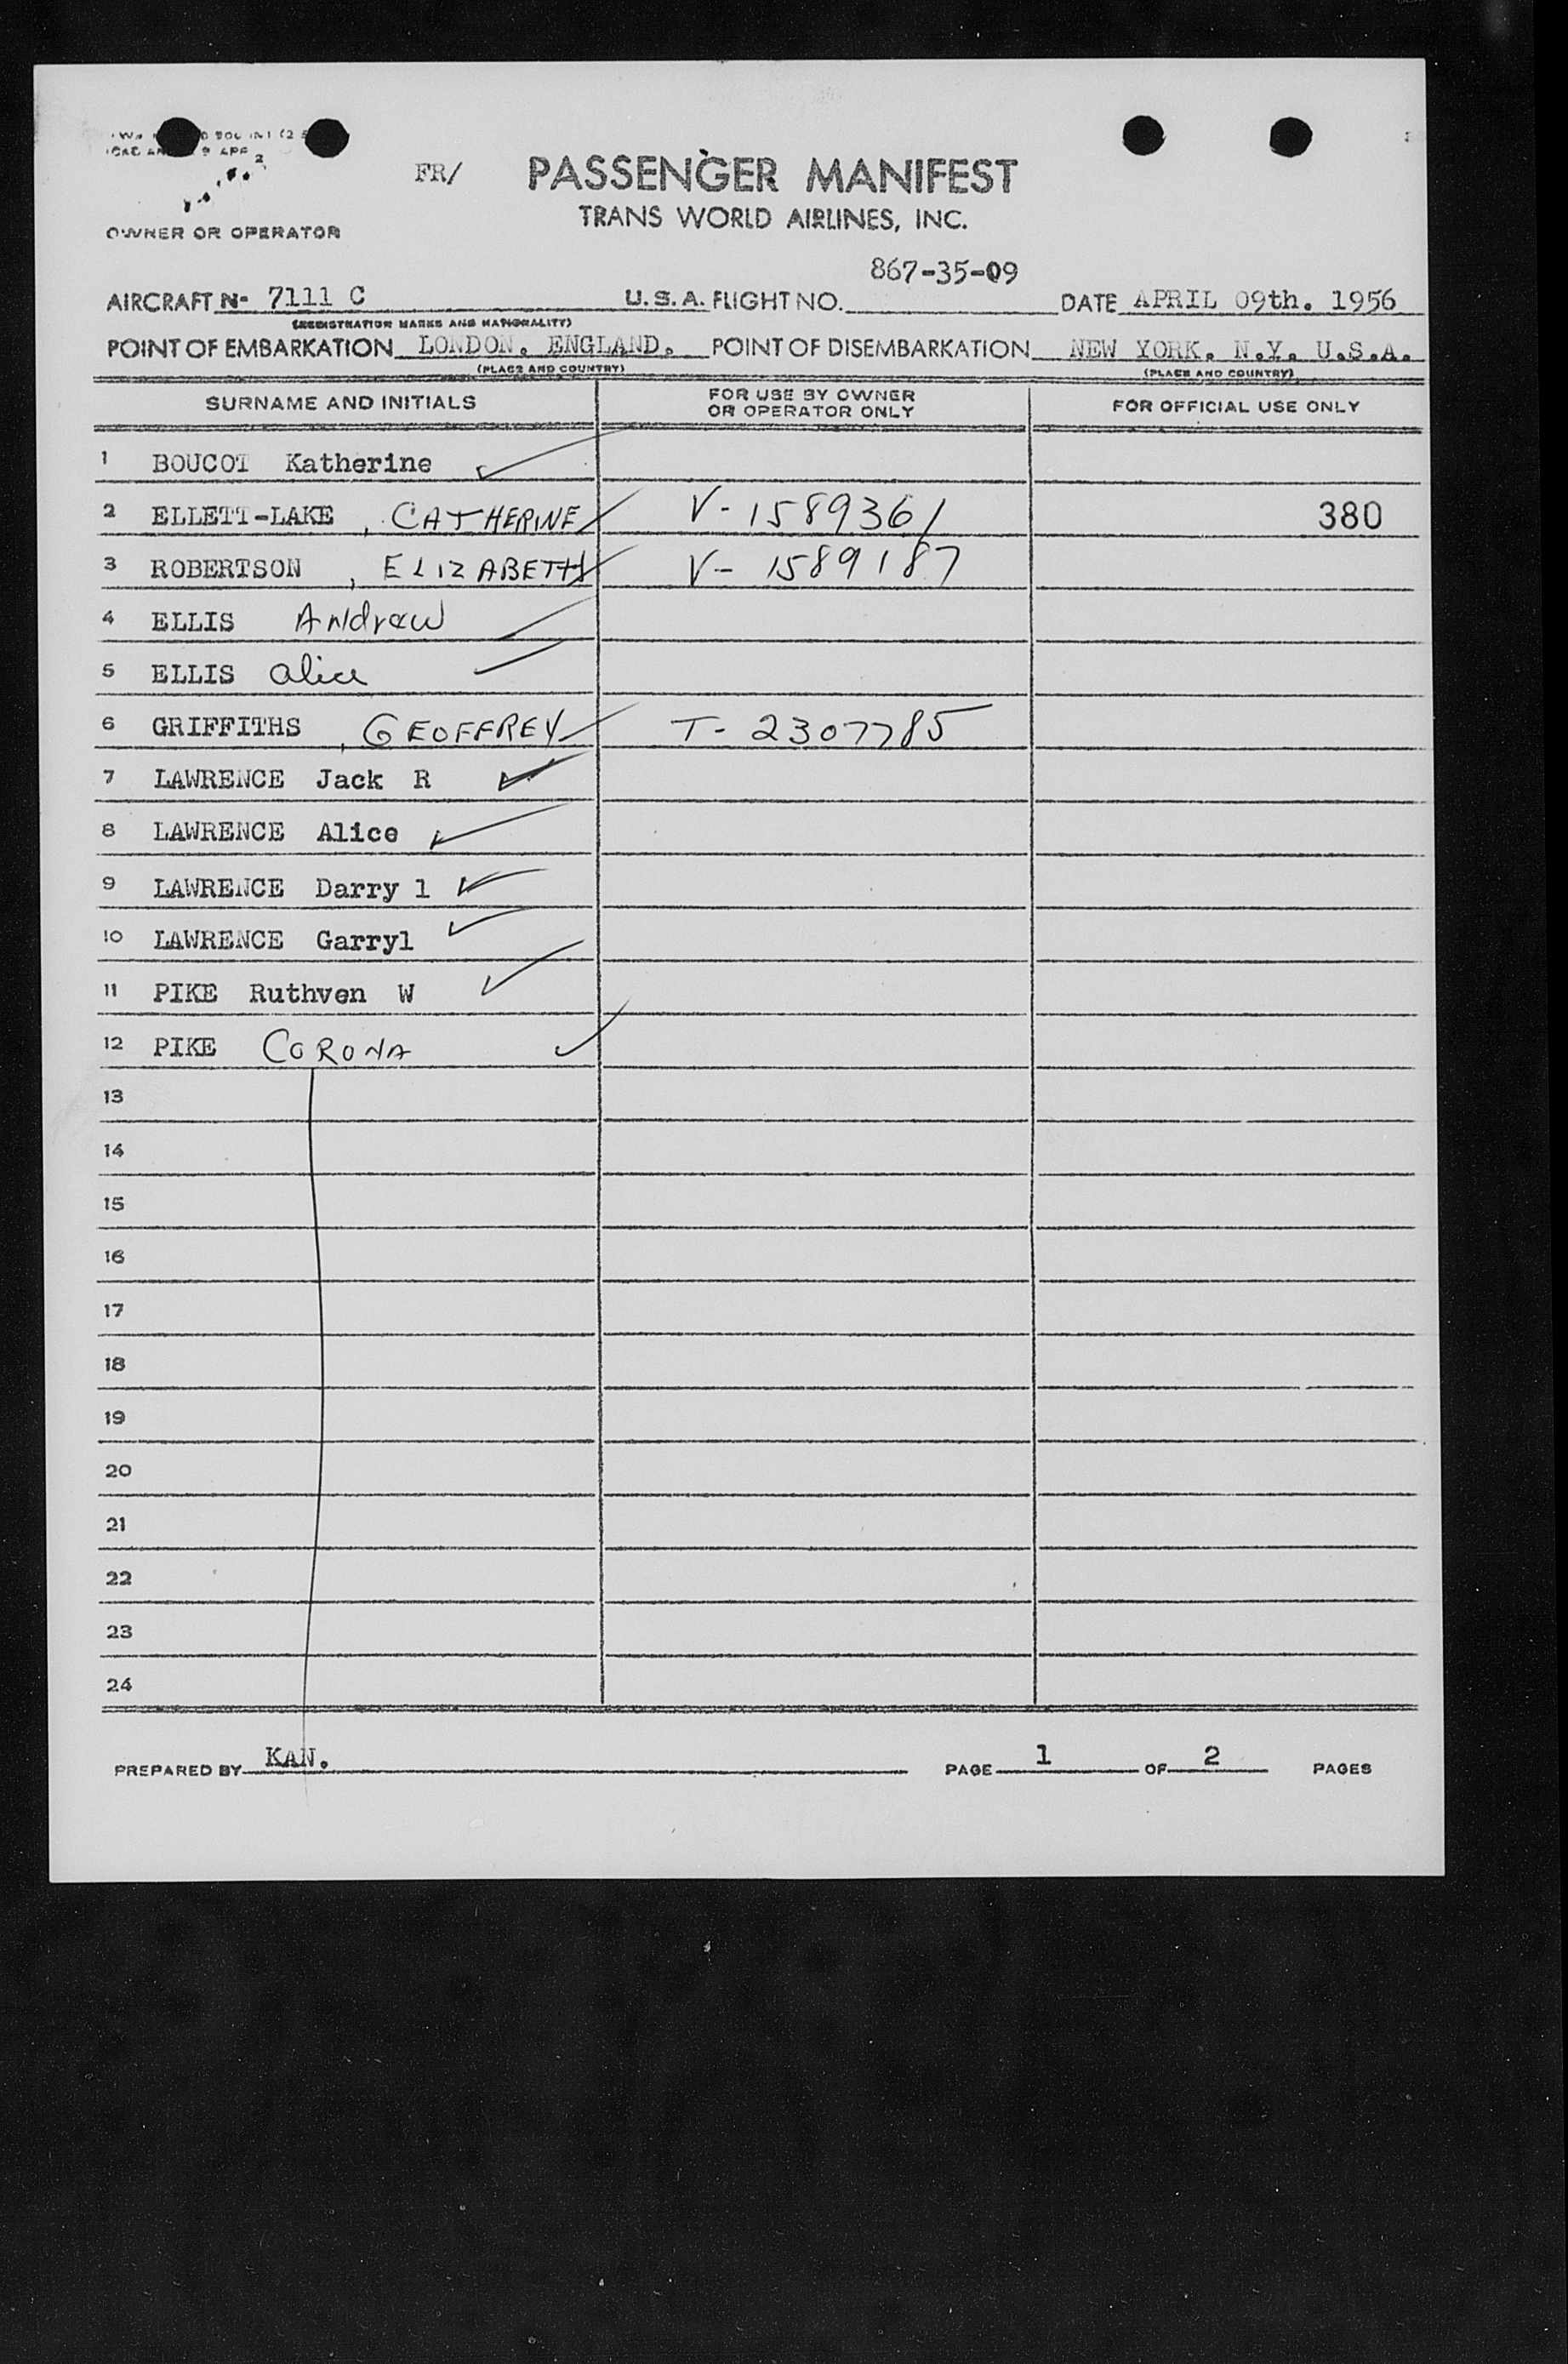 FR/ PASSENGER MANIFEST
TRANS WORLD AIRLINES, INC.
OWNER OR OPERATOR
867-35-09
AIRCRAFT N- 7111 C U.S.A. FLIGHT NO. DATE APRIL 09th. 1956
(REGISTRATION MARKS AND NATIONALITY)
POINT OF EMBARKATION LONDON. ENGLAND. POINT OF DISEMBARKATION NEW YORK. N.Y. U.S.A.
(PLACE AND COUNTRY) (PLACE AND COUNTRY)
SURNAME AND INITIALS FOR USE BY OWNER OR OPERATOR ONLY FOR OFFICIAL USE ONLY
1 BOUCOT Katherine
2 ELLETT-LAKE, CATHERINE V-1589361 380
3 ROBERTSON, ELIZABETH V-1589187
4 ELLIS Andrew
5 ELLIS Alice
6 GRIFFITHS, GEOFFREY T-2307785
7 LAWRENCE Jack R
8 LAWRENCE Alice
9 LAWRENCE Darry l
10 LAWRENCE Garryl
11 PIKE Ruthven W
12 PIKE CORONA
13
14
15
16
17
18
19
20
21
22
23
24
PREPARED BY KAN. PAGE 1 OF 2 PAGES